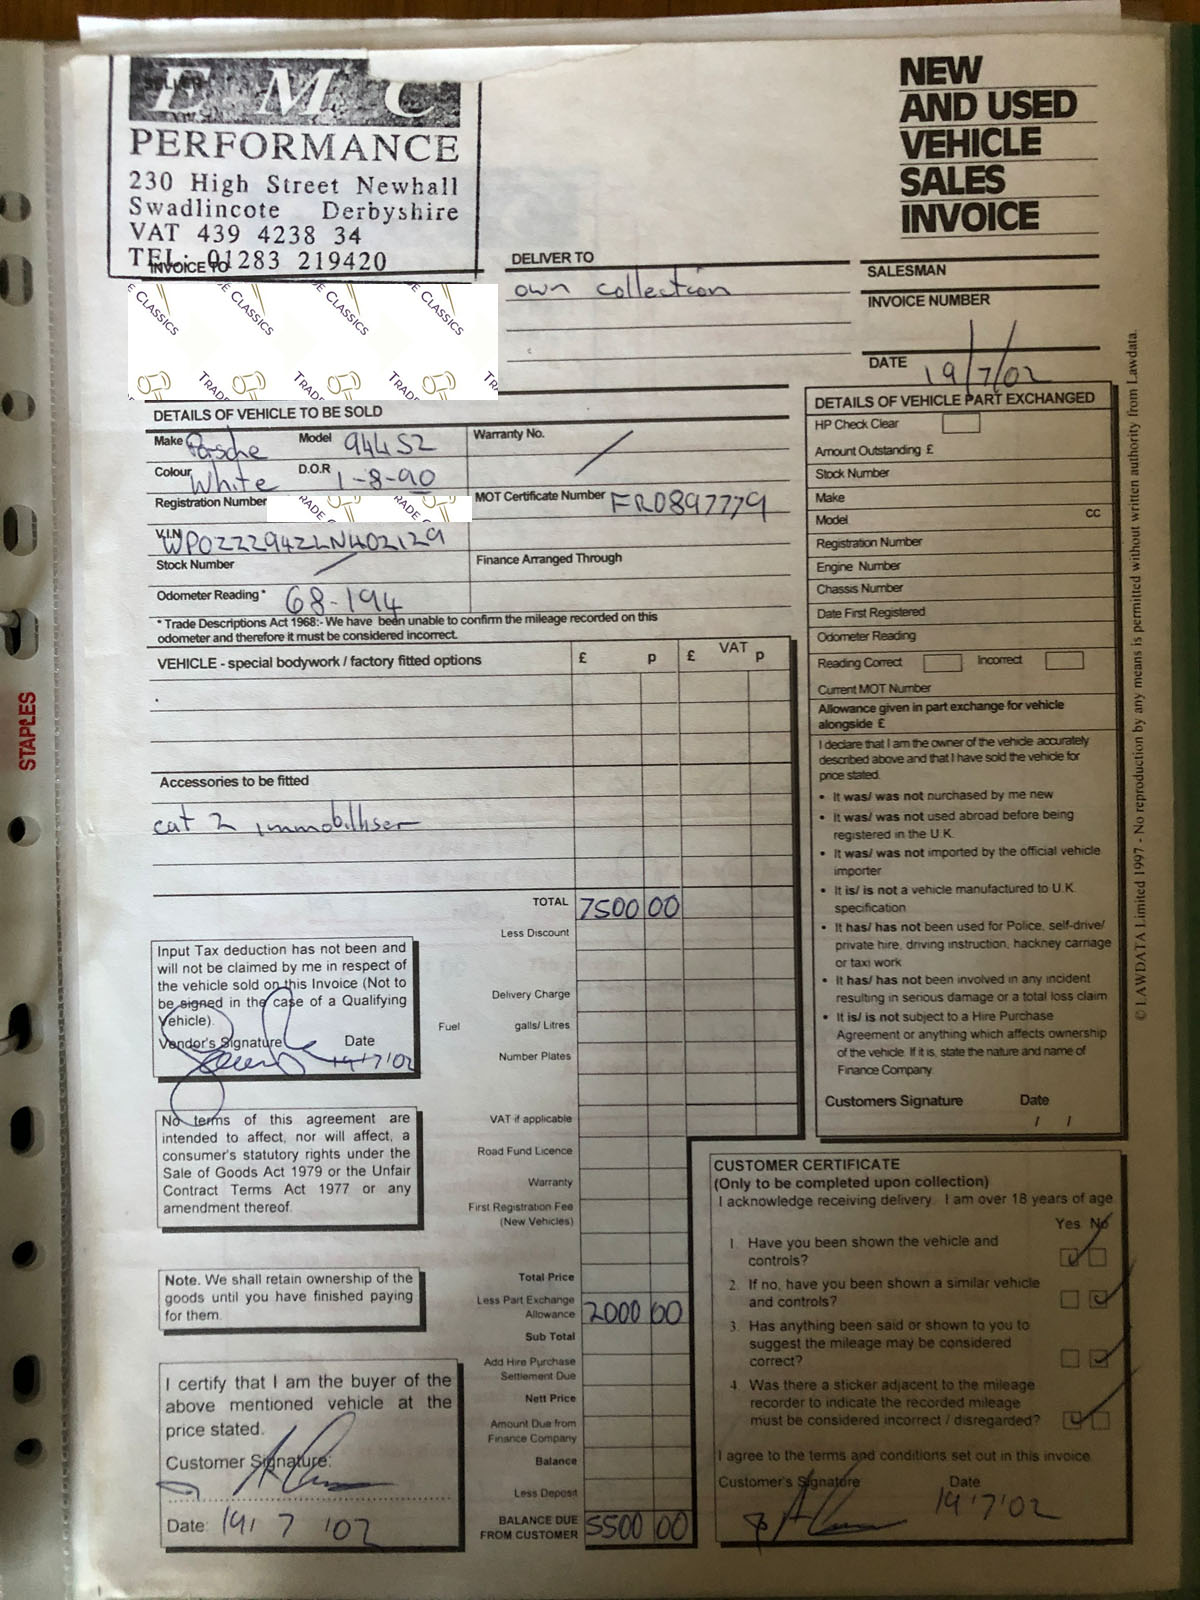 EMC
PERFORMANCE
230 High Street Newhall
Swadlincote Derbyshire
VAT 439 4238 34
TEL: 01283 219420
INVOICE TO
NEW
AND USED
VEHICLE
SALES
INVOICE
DELIVER TO
own collection
SALESMAN
INVOICE NUMBER
DATE 19/7/02
E CLASSICS
DE CLASSICS
DE CLASSICS
DE CLASSICS
TRADE
TRADE
TRADE
DETAILS OF VEHICLE TO BE SOLD
Make Porsche Model 944 S2 Warranty No.
Colour White D.O.R 1-8-90
Registration Number RADE C TRADE MOT Certificate Number FR0897779
V.I.N WP0ZZZ94ZLN402129
Stock Number Finance Arranged Through
Odometer Reading * 68-194
* Trade Descriptions Act 1968:- We have been unable to confirm the mileage recorded on this
odometer and therefore it must be considered incorrect.
VEHICLE - special bodywork / factory fitted options £ p £ VAT p
Accessories to be fitted
cat 2 immobilliser
TOTAL 7500 00
Less Discount
Delivery Charge
Fuel galls/ Litres
Number Plates
VAT if applicable
Road Fund Licence
Warranty
First Registration Fee
(New Vehicles)
Total Price
Less Part Exchange
Allowance 2000 00
Sub Total
Add Hire Purchase
Settlement Due
Nett Price
Amount Due from
Finance Company
Balance
Less Deposit
BALANCE DUE
FROM CUSTOMER 5500 00
Input Tax deduction has not been and
will not be claimed by me in respect of
the vehicle sold on this Invoice (Not to
be signed in the case of a Qualifying
Vehicle).
Vendor's Signature Date
19'7'02
No terms of this agreement are
intended to affect, nor will affect, a
consumer's statutory rights under the
Sale of Goods Act 1979 or the Unfair
Contract Terms Act 1977 or any
amendment thereof.
Note. We shall retain ownership of the
goods until you have finished paying
for them.
I certify that I am the buyer of the
above mentioned vehicle at the
price stated.
Customer Signature:
Date: 19' 7 '02
DETAILS OF VEHICLE PART EXCHANGED
HP Check Clear
Amount Outstanding £
Stock Number
Make
Model cc
Registration Number
Engine Number
Chassis Number
Date First Registered
Odometer Reading
Reading Correct Incorrect
Current MOT Number
Allowance given in part exchange for vehicle
alongside £
I declare that I am the owner of the vehicle accurately
described above and that I have sold the vehicle for
price stated.
• It was/ was not purchased by me new
• It was/ was not used abroad before being
registered in the U.K.
• It was/ was not imported by the official vehicle
importer
• It is/ is not a vehicle manufactured to U.K.
specification
• It has/ has not been used for Police, self-drive/
private hire, driving instruction, hackney carriage
or taxi work
• It has/ has not been involved in any incident
resulting in serious damage or a total loss claim
• It is/ is not subject to a Hire Purchase
Agreement or anything which affects ownership
of the vehicle. If it is, state the nature and name of
Finance Company
Customers Signature Date
/ /
CUSTOMER CERTIFICATE
(Only to be completed upon collection)
I acknowledge receiving delivery. I am over 18 years of age
Yes No
1. Have you been shown the vehicle and
controls?
2. If no, have you been shown a similar vehicle
and controls?
3. Has anything been said or shown to you to
suggest the mileage may be considered
correct?
4. Was there a sticker adjacent to the mileage
recorder to indicate the recorded mileage
must be considered incorrect / disregarded?
I agree to the terms and conditions set out in this invoice
Customer's Signature Date
19'7'02
© LAWDATA Limited 1997 - No reproduction by any means is permitted without written authority from Lawdata.
STAPLES